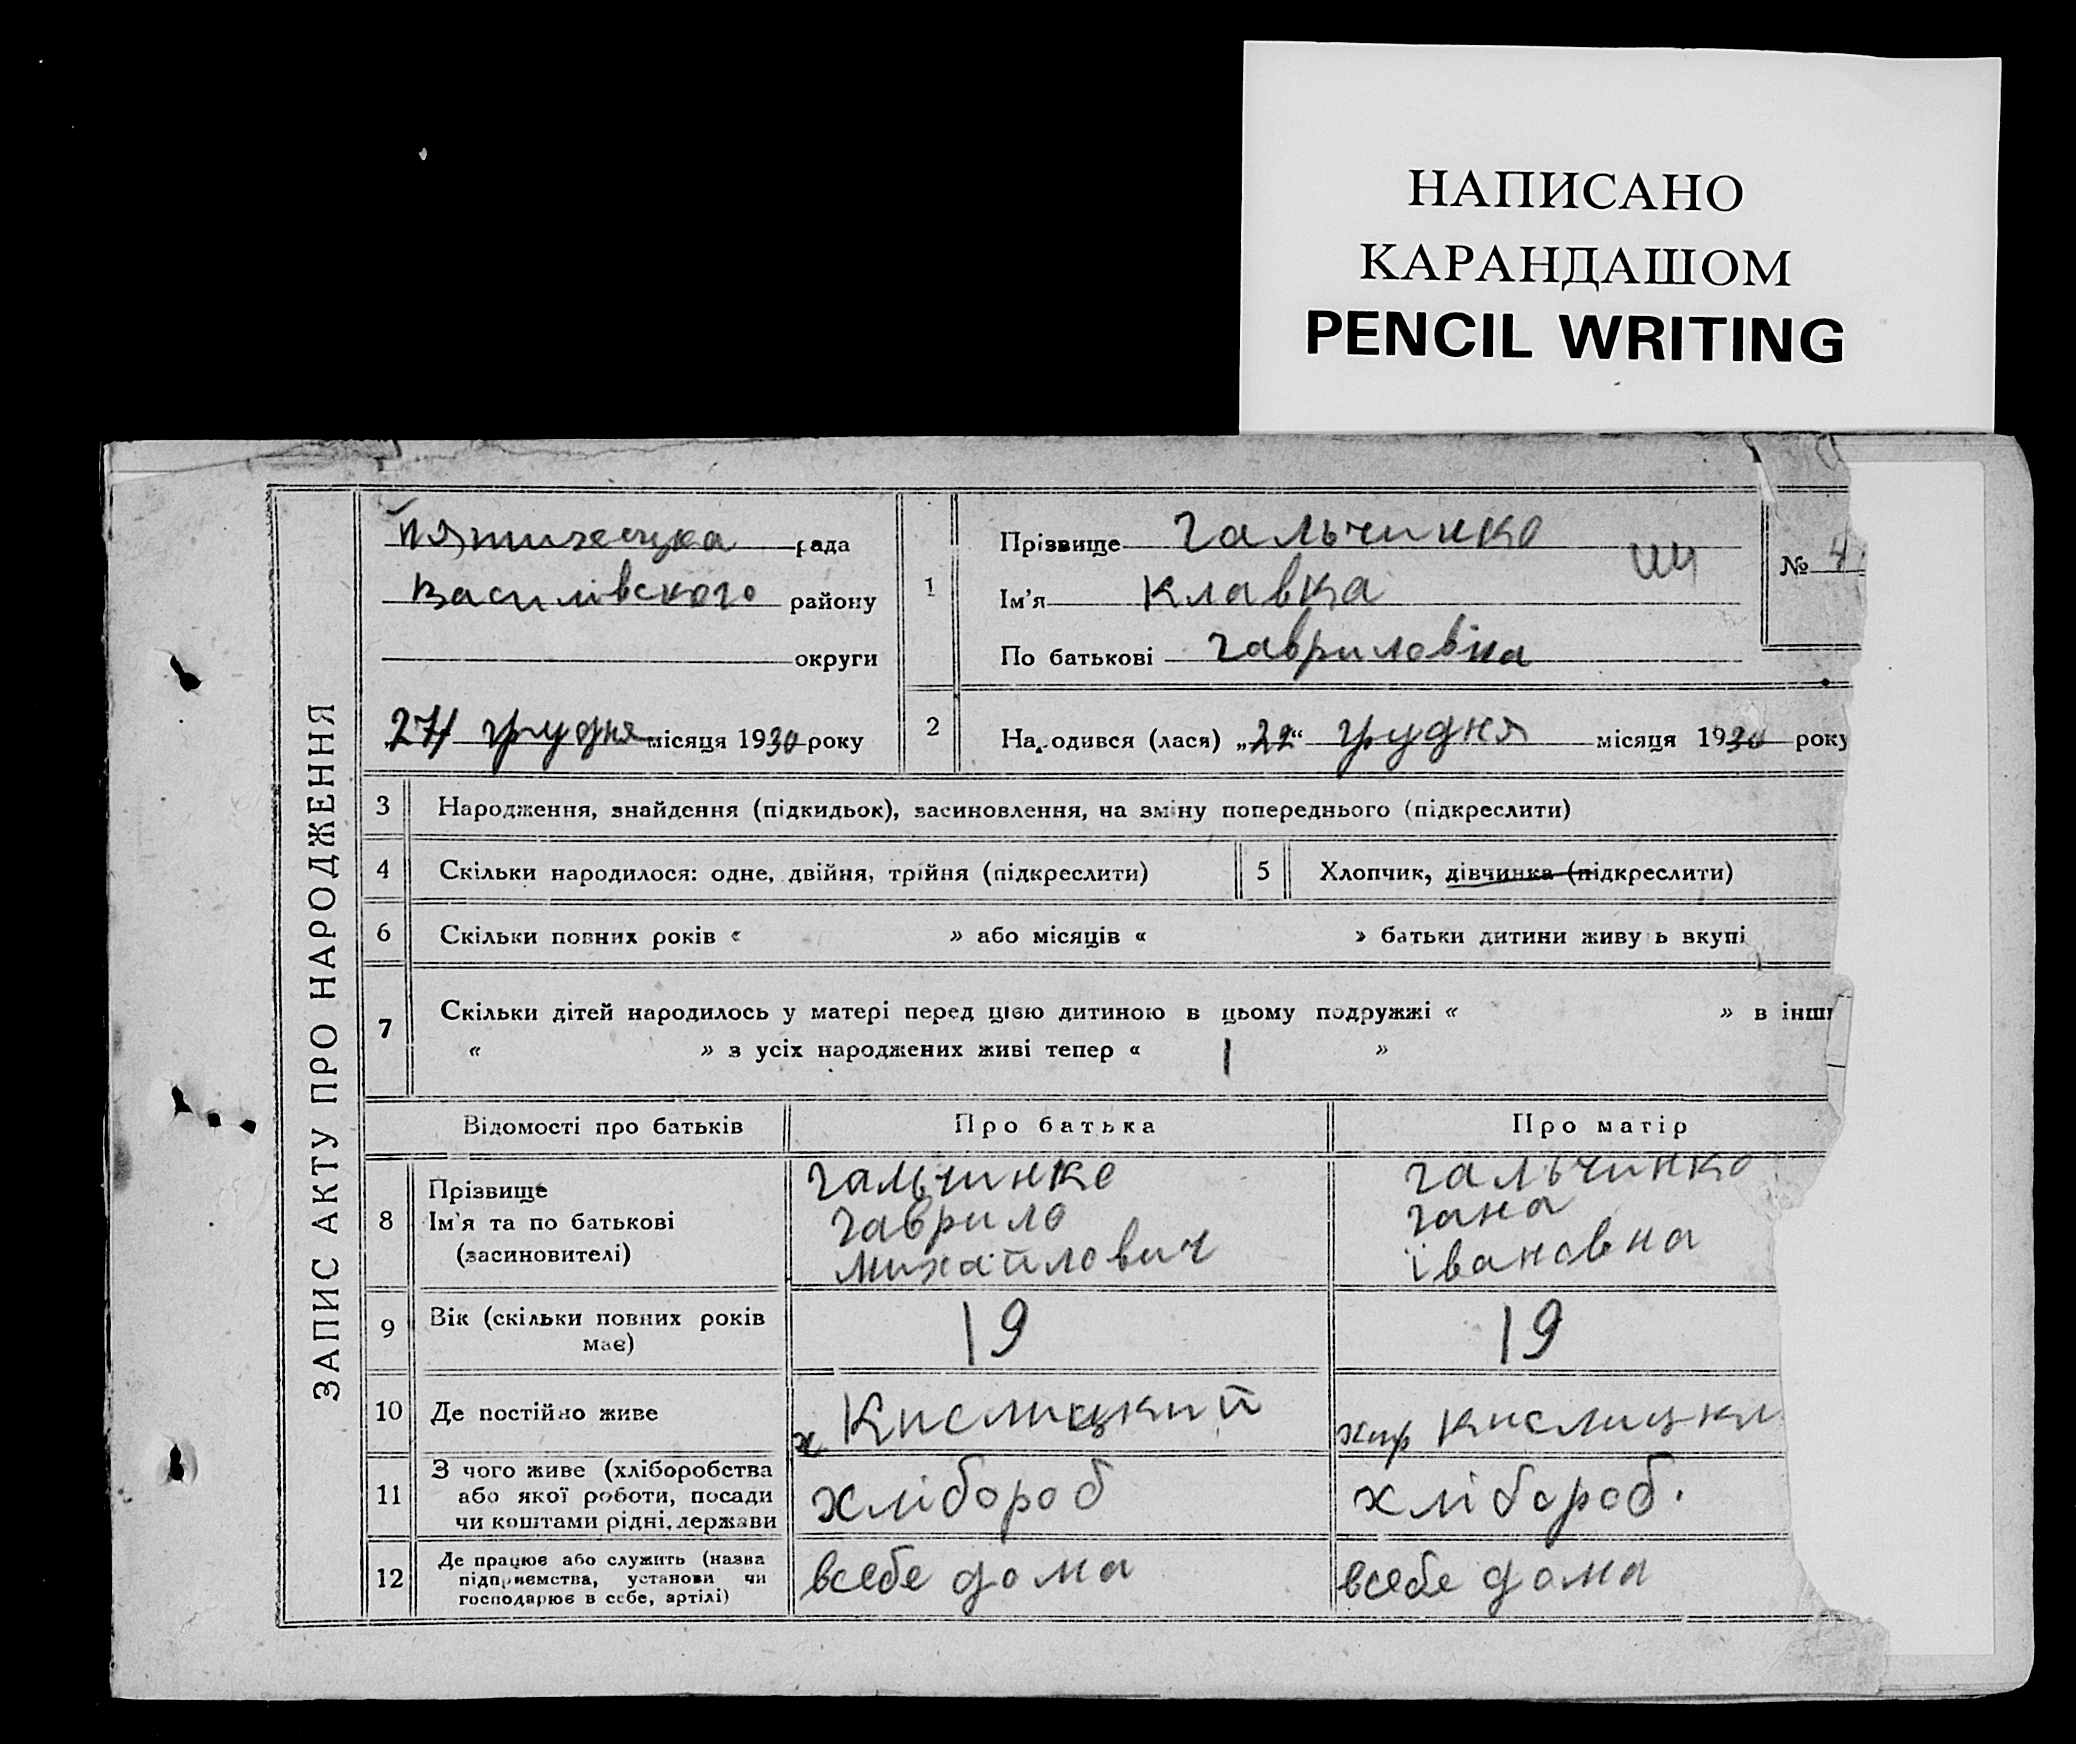 НАПИСАНО
КАРАНДАШОМ
PENCIL WRITING
ЗАПИС АКТУ ПРО НАРОДЖЕННЯ
рада
Василівского району
округи
27 грудня місяця 1930 року
1
Прізвище гальчинко
Ім'я клавка
По батькові гавриловна
№ 4
2
Народився (лася) „22“ грудня місяця 1930 року
3 Народження, знайдення (підкидьок), засиновлення, на зміну попереднього (підкреслити)
4 Скільки народилося: одне, двійня, трійня (підкреслити) 5 Хлопчик, дівчинка (підкреслити)
6 Скільки повних років « » або місяців « » батьки дитини живу ь вкупі
7 Скільки дітей народилось у матері перед цією дитиною в цьому подружжі « » в інш
« » з усіх народжених живі тепер « 1 »
Відомості про батьків Про батька Про матір
8
Прізвище гальчинко гальчинко
Ім'я та по батькові гаврило гана
(засиновителі) михайлович івановна
9 Вік (скільки повних років 19 19
має)
10 Де постійно живе х Кислицкий хутр Кислицки
11
З чого живе (хліборобства
або якої роботи, посади хлібороб хлібороб.
чи коштами рідні, держави
12
Де працює або служить (назва
підприємства, установи чи всебе дома всебе дома
господарює в себе, артілі)